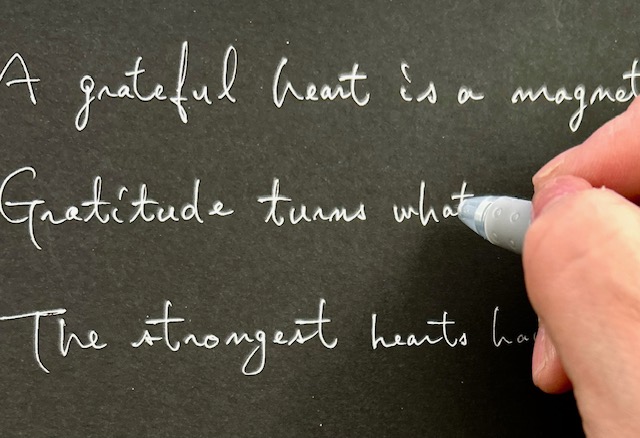 A grateful heart is a magnet
Gratitude turns what
The strongest hearts